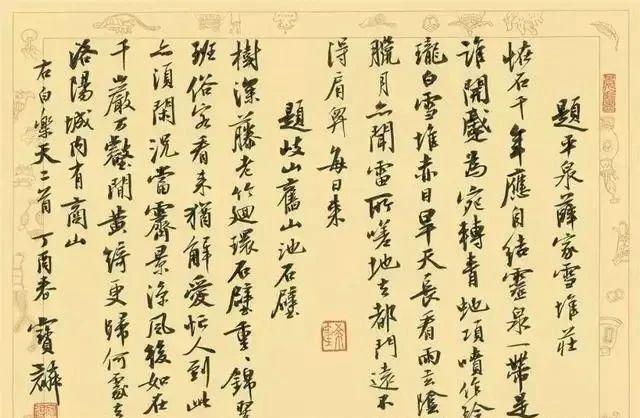 題平泉薛家雪堆莊
恠石千年應自結靈泉一帶是
誰開蹙為宛轉青虵項噴作玲
瓏白雪堆赤日旱天長看雨玄陰
臘月亦聞雷所嗟地去都門遠不
得肩舁每日来
題岐山舊山池石壁
樹深藤老竹廻環石壁重〻錦翠
班俗客看来猶解愛忙人到此
亦須閑况當霽景涼風後如在
千巖万壑間黄綺更歸何處去
洛陽城内有商山
右白樂天二首丁酉春寶麟